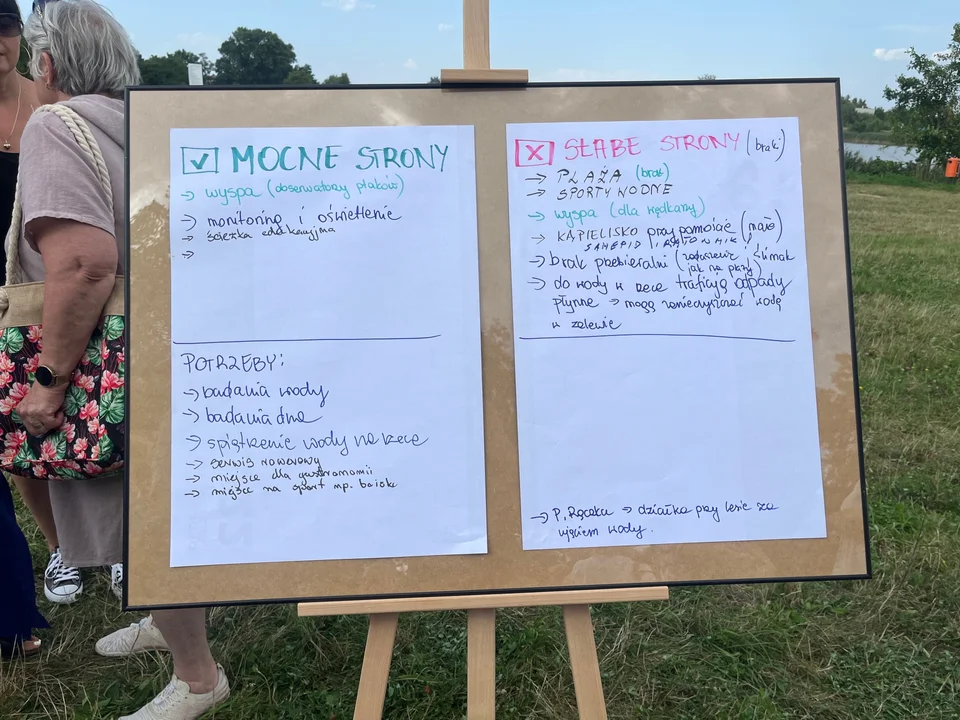 MOCNE STRONY
→ wyspa (obserwatorzy ptaków)
→ monitoring i oświetlenie
→ ścieżka edukacyjna
→
POTRZEBY:
→ badania wody
→ badania dna
→ spiętrzenie wody na rzece
→ serwis rowerowy
→ miejsce dla gastronomii
→ miejsce na sport np. boisk
SŁABE STRONY (braki)
→ PLAŻA (brak)
→ SPORTY WODNE
→ wyspa (dla wędkarzy)
→ KĄPIELISKO przypomoiać (mało)
SANEPID, RATOWNIK
→ brak przebieralni ( ślimak
jak na plaży)
→ do wody w rzece trafiają odpady
płynne → mogą zanieczyszczać wodę
w zalewie
→ P. Rączka → działka przy lesie za
ujęciem wody.